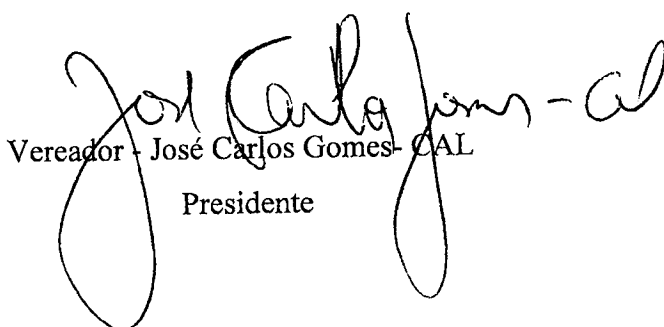 José Carlos Gomes - Cal
Vereador - José Carlos Gomes- CAL
Presidente